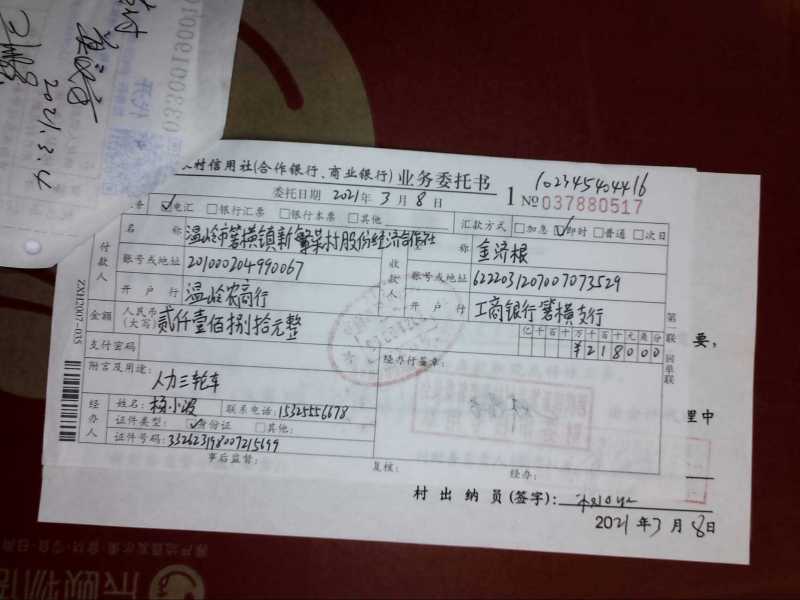 2021.3.4
村信用社(合作银行、商业银行)业务委托书
委托日期 2021年 3月 8日
1 10234540441 6
№ 037880517
电汇 银行汇票 银行本票 其他
汇款方式 加急 即时 普通 次日
付款人
名称 温岭市箬横镇新繁荣村股份经济合作社
账号或地址 201000204990067
开户行 温岭农商行
收款人
称 金济根
账号或地址 6222031207007073529
开户行 工商银行箬横支行
金额 人民币(大写) 贰仟壹佰捌拾元整
亿千百十万千百十元角分
¥218000
支付密码
经办行签章:
附言及用途:
人力三轮车
经办人
姓名: 杨小波 联系电话: 15325556678
证件类型: 身份证 其他:
证件号码: 332623198007215699
事后监督: 复核: 经办:
ZXH2007-035
第一联 回单联
要,
里中
村出纳员(签字):
2021年3月8日